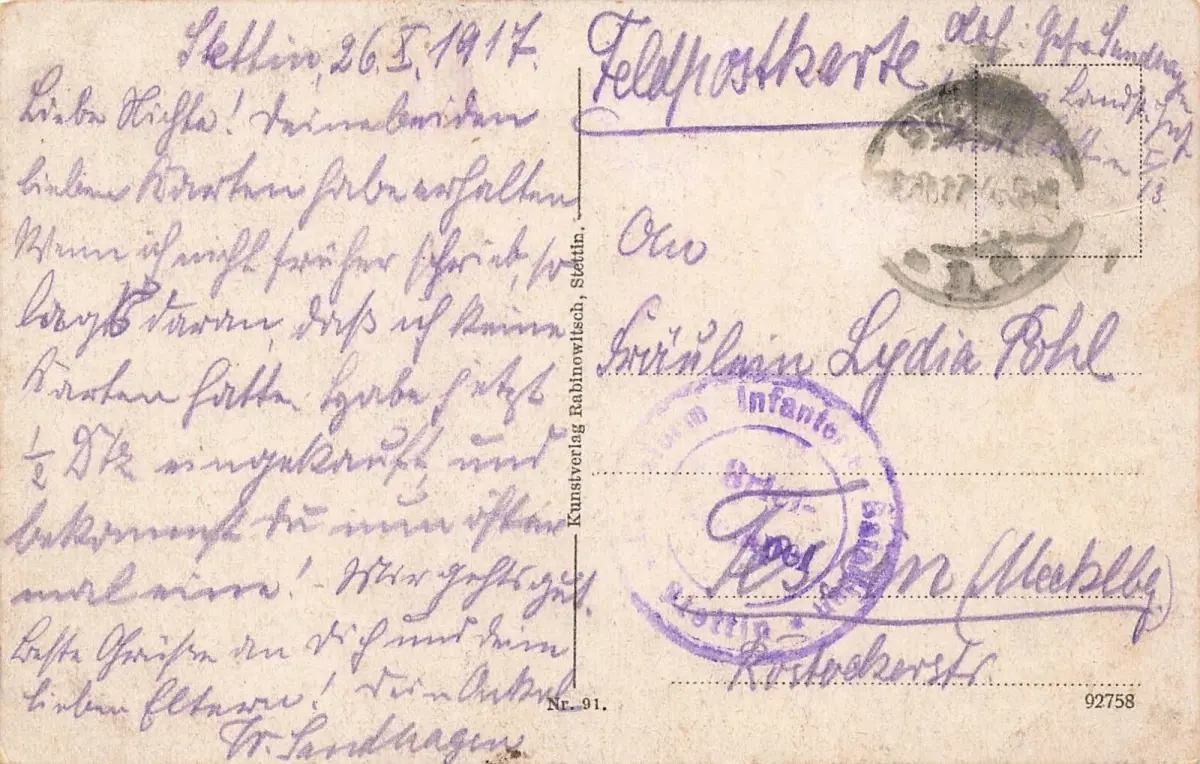 Stettin, 26.X.1917.
Liebe Nichte! Deine beiden
lieben Karten habe erhalten
Wenn ich nicht früher schrieb, so
lags daran, daß ich keine
Karten hatte. Habe jetzt
1/2 Dtz eingekauft und
bekommst du nun öfter
mal eine! - Mir gehts gut.
Beste Grüße an Dich und dein
lieben Eltern! Dein Onkel
Fr. Sandhagen
Kunstverlag Rabinowitsch, Stettin.
Nr. 91.
Feldpostkarte
Abs: Sandhagen
Landst. Inft
An
Fräulein Lydia Pohl
Infanterie Bataillon
Stettin
Tessin (Mecklbg.)
Rostockerstr
92758